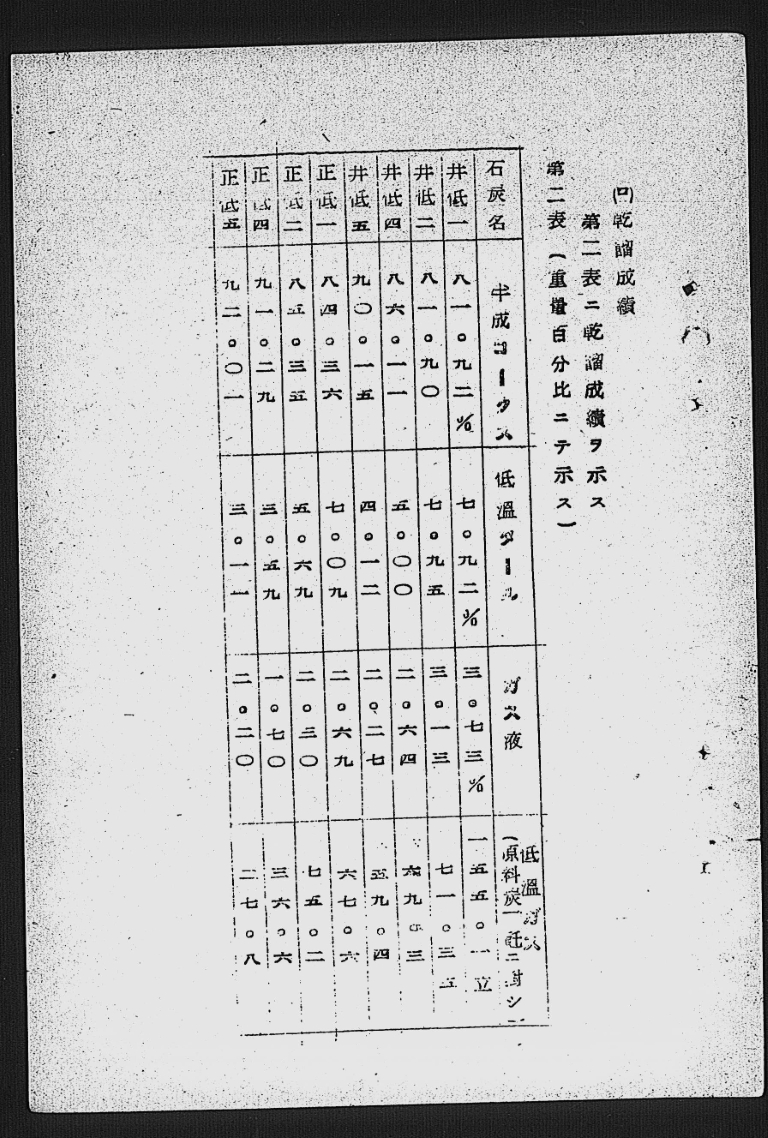 (ロ)乾溜成績
第二表ニ乾溜成績ヲ示ス
第二表(重量百分比ニテ示ス)
石炭名 半成コークス 低溫タール ガス液 低溫ガス(原料炭一瓩ニ對シ
井低一 八一。九二% 七。九二% 三。七三% 一五五。一立
井低二 八一。九〇 七。九五 三。一三 七一。三五
井低四 八六。一一 五。〇〇 二。六四 六九。三
井低五 九〇。一五 四。一二 二。二七 五九。四
正低一 八四。三六 七。〇九 二。六九 六七。六
正低二 八五。三五 五。六九 二。三〇 七五。二
正低四 九一。二九 三。五九 一。七〇 三六。六
正低五 九二。〇一 三。一一 二。二〇 二七。八